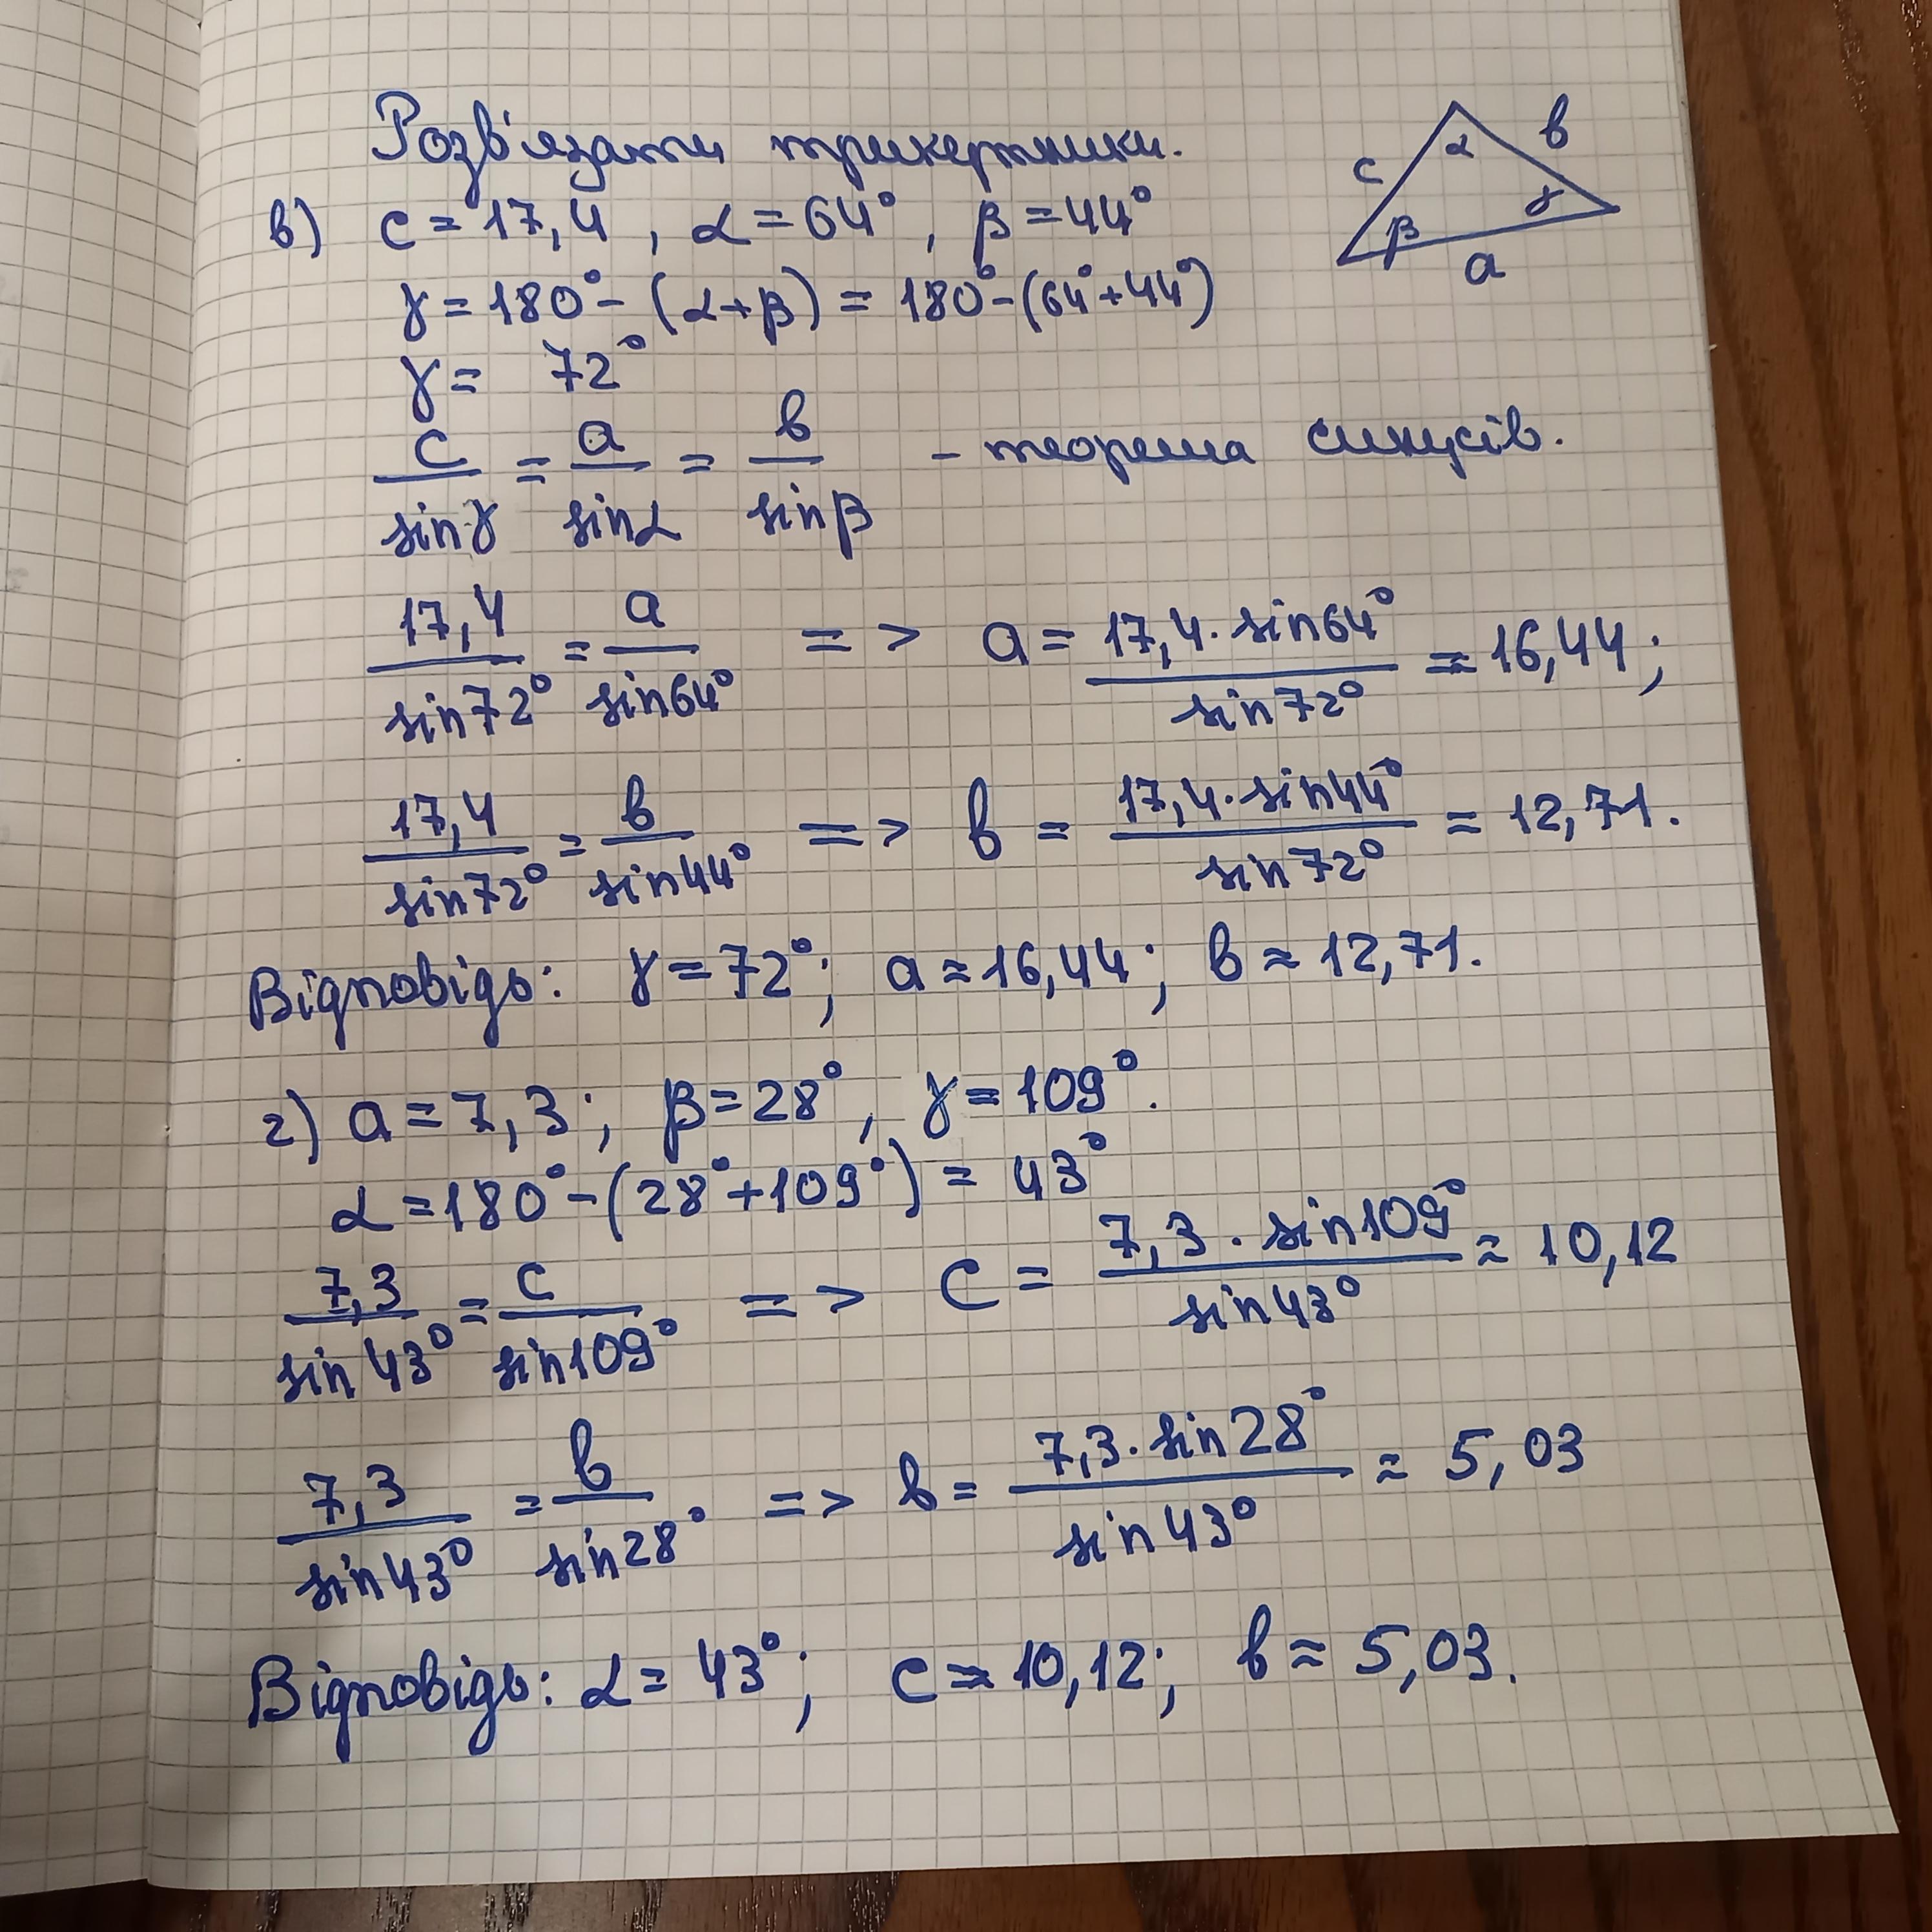 Розв'язати трикутники.
c b α β γ a
в) c = 17,4 , α = 64° , β = 44°
γ = 180° - (α+β) = 180° - (64°+44°)
γ = 72°
c/sinγ = a/sinα = b/sinβ - теорема синусів.
17,4/sin72° = a/sin64° => a = 17,4 · sin64°/sin72° ≈ 16,44;
17,4/sin72° = b/sin44° => b = 17,4 · sin44°/sin72° = 12,71.
Відповідь: γ = 72°; a ≈ 16,44; b ≈ 12,71.
г) a = 7,3; β = 28°, γ = 109°.
α = 180° - (28° + 109°) = 43°
7,3/sin43° = c/sin109° => c = 7,3 · sin109°/sin43° ≈ 10,12
7,3/sin43° = b/sin28° => b = 7,3 · sin28°/sin43° ≈ 5,03
Відповідь: α = 43°; c ≈ 10,12; b ≈ 5,03.